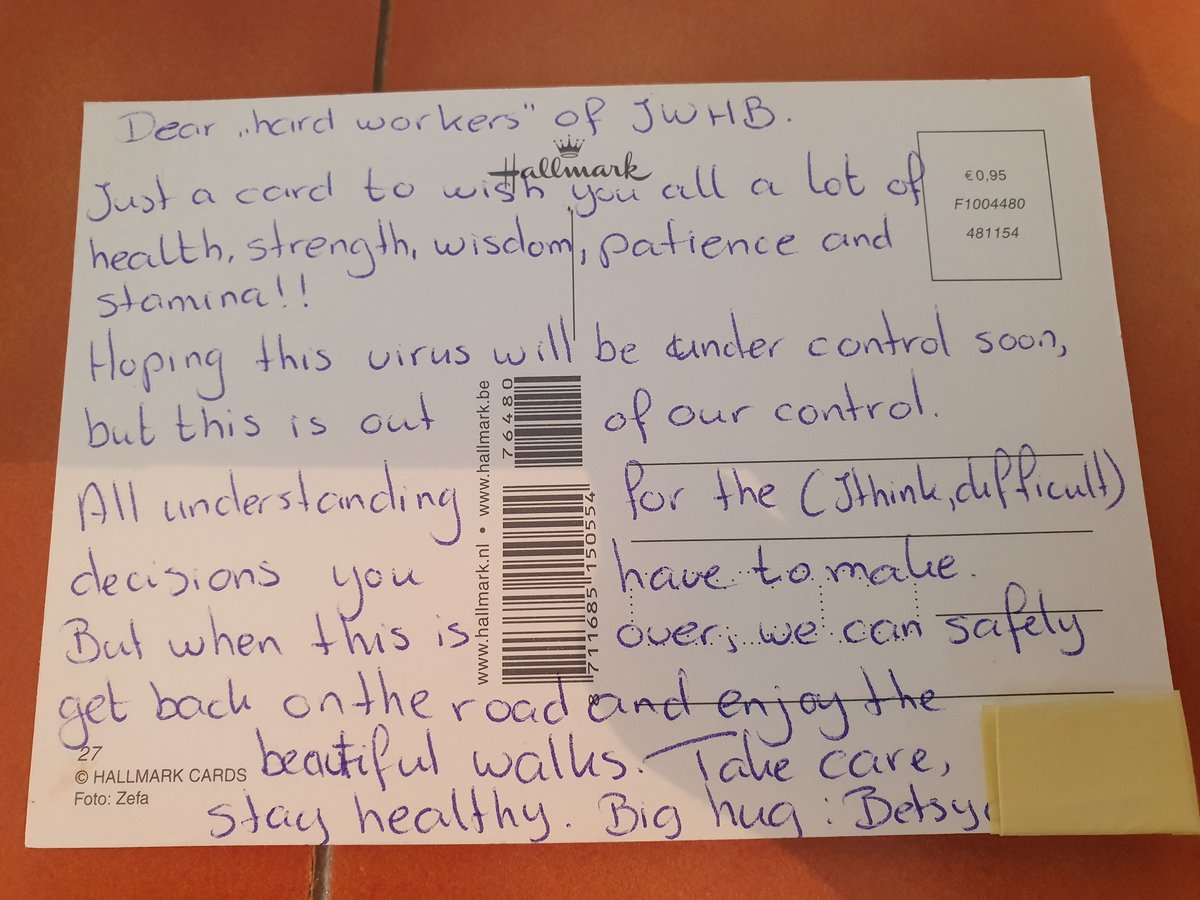 Dear „hard workers" of JWHB.
Hallmark
Just a card to wish you all a lot of
health, strength, wisdom, patience and
stamina!!
Hoping this virus will be under control soon,
but this is out of our control.
All understanding for the (I think, difficult)
decisions you have to make.
But when this is over, we can safely
get back on the road and enjoy the
beautiful walks. Take care,
stay healthy. Big hug: Betsy
€0,95
F1004480
481154
www.hallmark.nl • www.hallmark.be
76480
8 711685 150554
27
© HALLMARK CARDS
Foto: Zefa